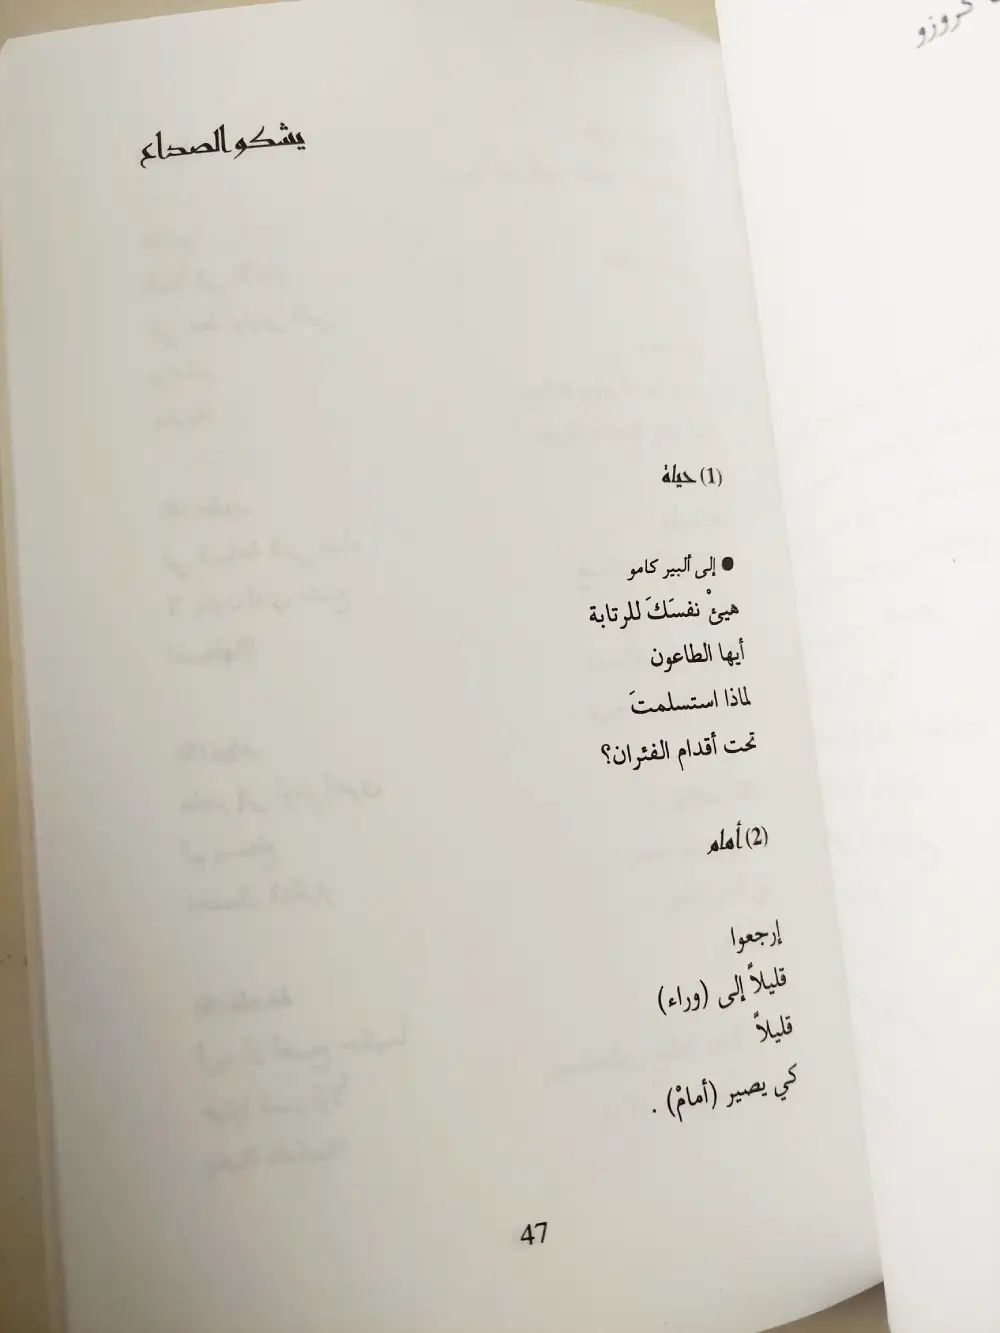 كروزو
يشكو الصداع
(1) حياة
● إلى ألبير كامو
هيئْ نفسَكَ للرتابة
أيها الطاعون
لماذا استسلمتَ
تحت أقدام الفئران؟
(2) أمام
إرجعوا
قليلاً إلى (وراء)
قليلاً
كي يصير (أمامْ) .
47